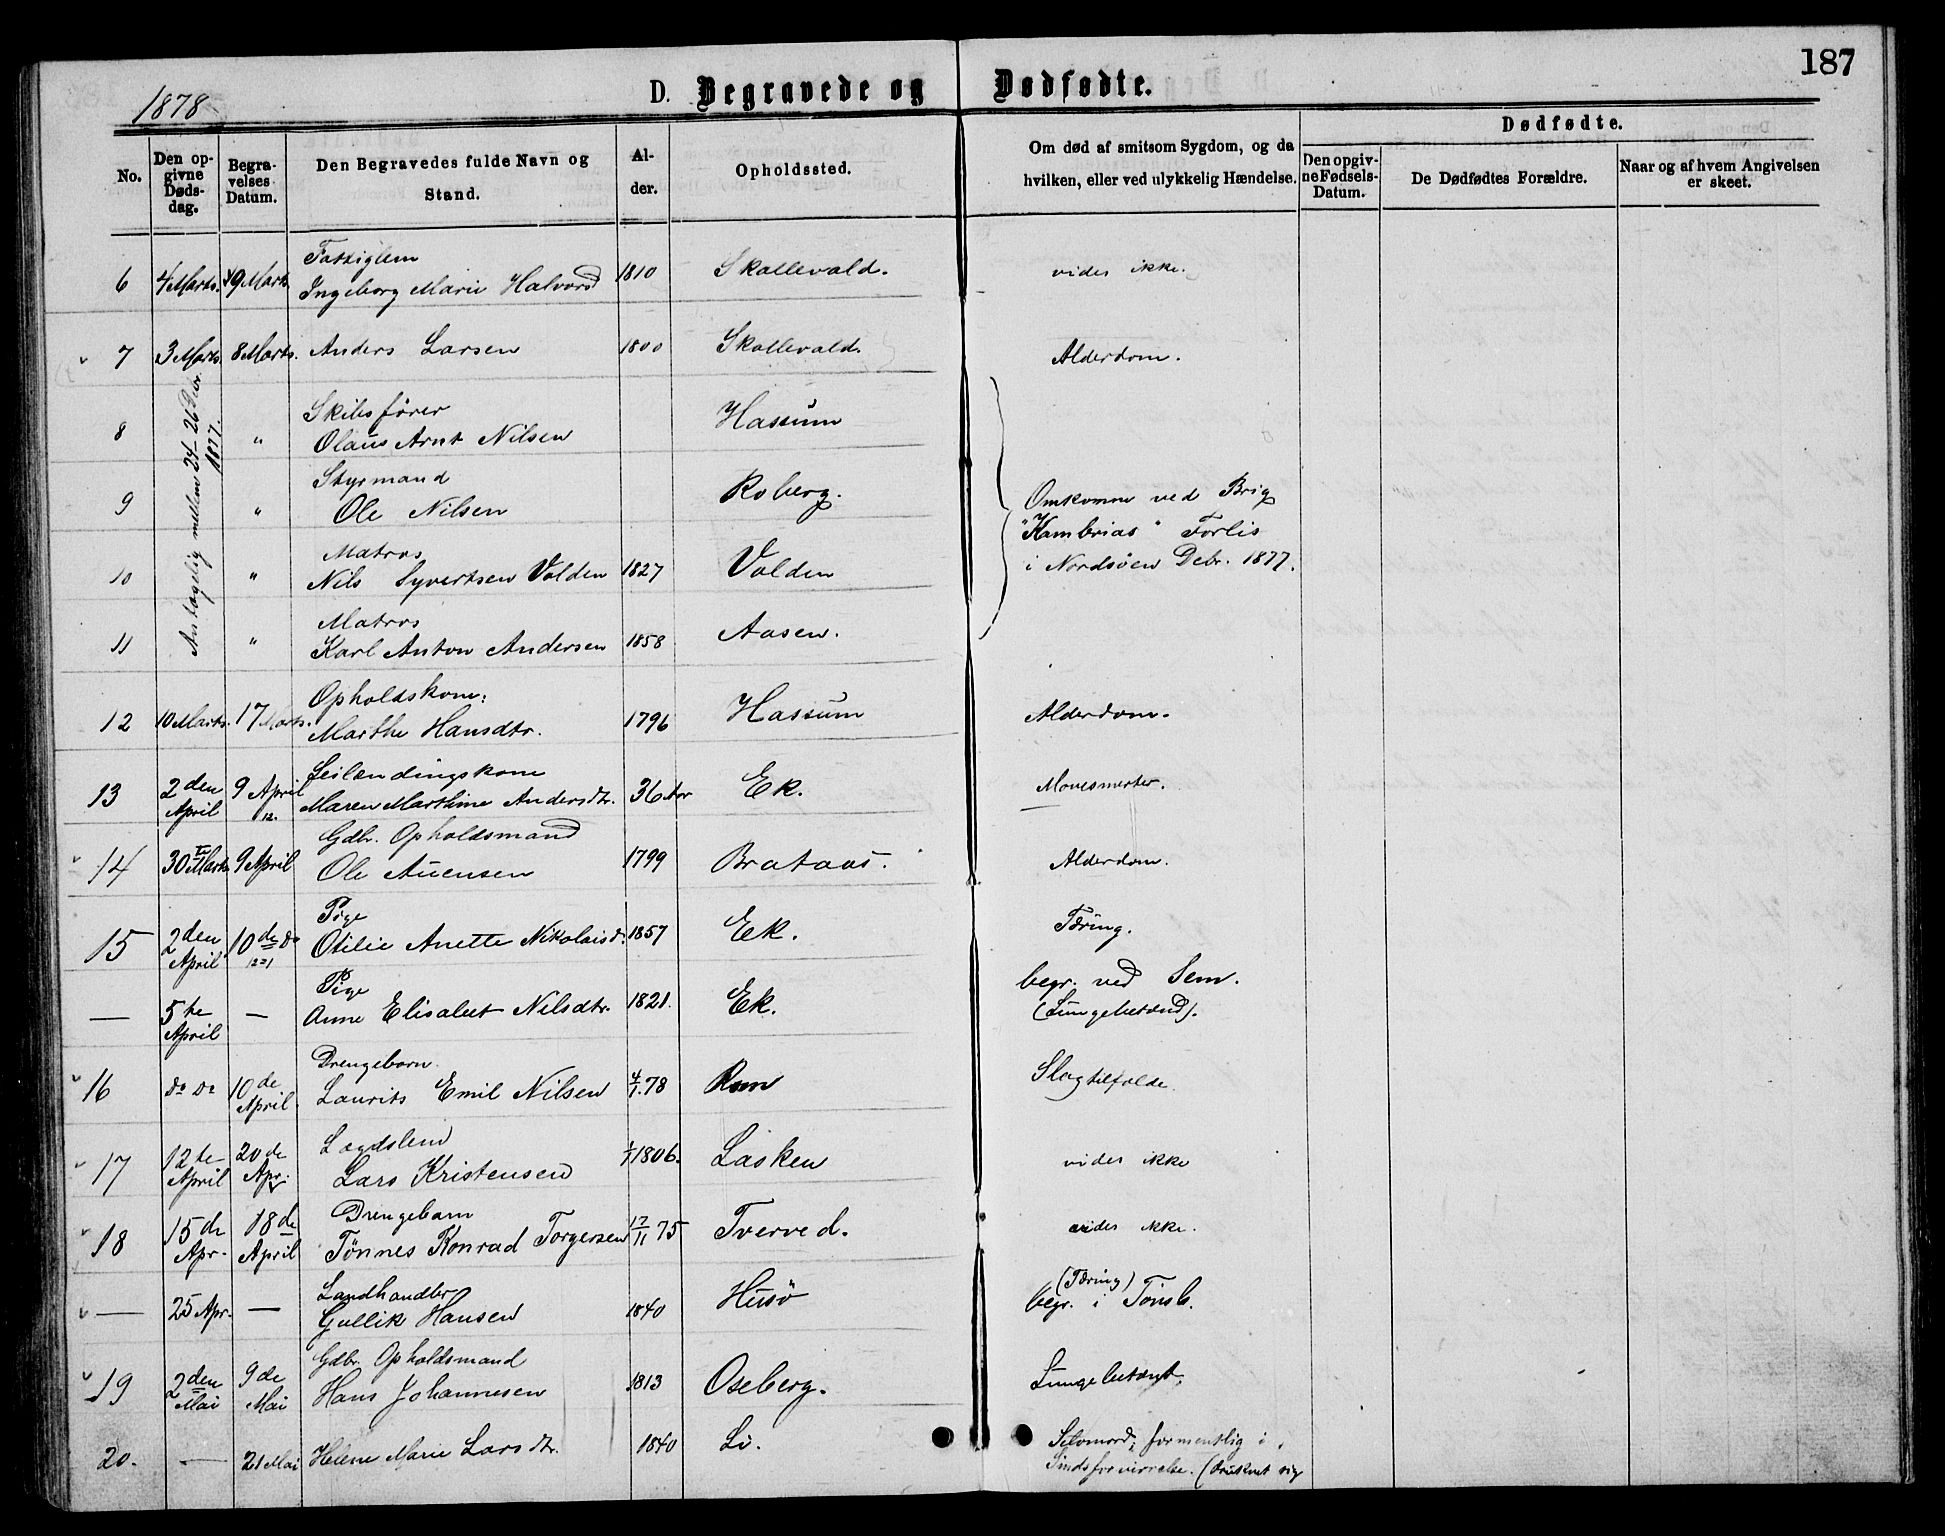 187
1878
D. Begravede og Dødfødte.
No.
Den opgivne Dødsdag.
Begravelses Datum.
Den Begravedes fulde Navn og Stand.
Alder.
Opholdssted.
Om død af smitsom Sygdom, og da hvilken, eller ved ulykkelig Hændelse.
Dødfødte.
Den opgivne Fødsels-Datum.
De Dødfødtes Forældre.
Naar og af hvem Angivelsen er skeet.
6 4 Marts. 9 Marts Fattiglem
Ingeborg Marie Halvorsd 1810 Skallevald. vides ikke.
7 3 Marts 8 Marts. Anders Larsen 1800 Skallevald. Alderdom.
Antagelig mellem 24-26 Debr. 1877.
8 " Skibsfører
Olaus Arnt Nilsen Hassum
9 " Styrmand
Ole Nilsen Roberg.
Omkomne ved Brig
"Kambrias" Forlis
i Nordsøen Debr. 1877.
10 " Matros
Nils Syvertsen Valden 1827 Valden
11 " Matros
Karl Anton Andersen 1858 Aasen.
12 10 Marts. 17 Marts. Opholdskone:
Marthe Hansdtr. 1796 Hassum Alderdom.
13 2den April 9 April 12. Leilændingskone
Maren Marthine Andersdtr. 36 Aar Ek. Mavesmerter.
14 30 Marts 9 April Gdbr. Opholdsmand
Ole Auensen 1799 Brataas. Alderdom.
15 2den April 10de do Pige
Otilie Anette Nikolaisd. 1857 Ek. Tæring.
— 5te April — Pige
Anne Elisabet Nilsdtr. 1821. Ek. begr. ved Sem.
(Lungebetænd).
16 do do 10de April. Drengebarn.
Laurits Emil Nilsen 4/1.78 Rom Slagtilfælde.
17 12te April 20de Apr. Lægdslem
Lars Kristensen 1/1 1806. Lasken vides ikke
18 15de Apr. 18de April Drengebarn
Tønnes Konrad Torgersen 17/11 75 Tverved. vides ikke.
— 25 Apr. — Landhandler
Gullik Hansen 1840 Husö (Tæring)
begr. i Tønsb.
19 2den Mai 9de Mai Gdbr. Opholdsmand
Hans Johannesen 1813 Oseberg. Lungebetændt.
20. — 21 Mai Helene Marie Larsdtr. 1840 Li. Selvmord, formentlig i
Sindsforvirrelse. (druknet sig